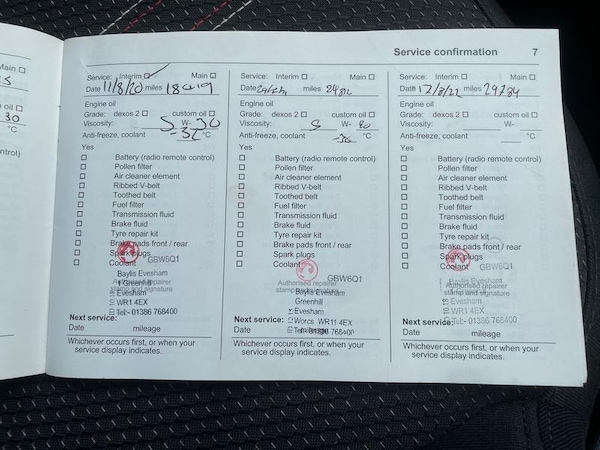 Service confirmation 7
Main
Service: Interim Main
Date 11/8/20 miles
Engine oil
Grade: dexos 2 custom oil
Viscosity: 5 W- 30
Anti-freeze, coolant -32 °C
Yes
Battery (radio remote control)
Pollen filter
Air cleaner element
Ribbed V-belt
Toothed belt
Fuel filter
Transmission fluid
Brake fluid
Tyre repair kit
Brake pads front / rear
Spark plugs
Coolant GBW6Q1
Baylis Evesham
Authorised repairer
1 Greenhill
stamp and signature
Evesham
WR11 4EX
Tel:- 01386 768400
Next service:
Date mileage
Whichever occurs first, or when your
service display indicates.
Service: Interim Main
Date miles
Engine oil
Grade: dexos 2 custom oil
Viscosity: 5 W-
Anti-freeze, coolant °C
Yes
Battery (radio remote control)
Pollen filter
Air cleaner element
Ribbed V-belt
Toothed belt
Fuel filter
Transmission fluid
Brake fluid
Tyre repair kit
Brake pads front / rear
Spark plugs
Coolant
GBW6Q1
Authorised repairer
Baylis Evesham
Greenhill
Evesham
Worcs WR11 4EX
Next service:
Date
Tel 01386 768400
Whichever occurs first, or when your
service display indicates.
Service: Interim Main
Date 17/8/22 miles 29784
Engine oil
Grade: dexos 2 custom oil
Viscosity: W-
Anti-freeze, coolant °C
Yes
Battery (radio remote control)
Pollen filter
Air cleaner element
Ribbed V-belt
Toothed belt
Fuel filter
Transmission fluid
Brake fluid
Tyre repair kit
Brake pads front / rear
Spark plugs
Coolant GBW6Q1
Baylis Evesham
Authorised repairer
Evesham
WR11 4EX
Tel:- 01386 768400
Next service:
Date mileage
Whichever occurs first, or when your
service display indicates.